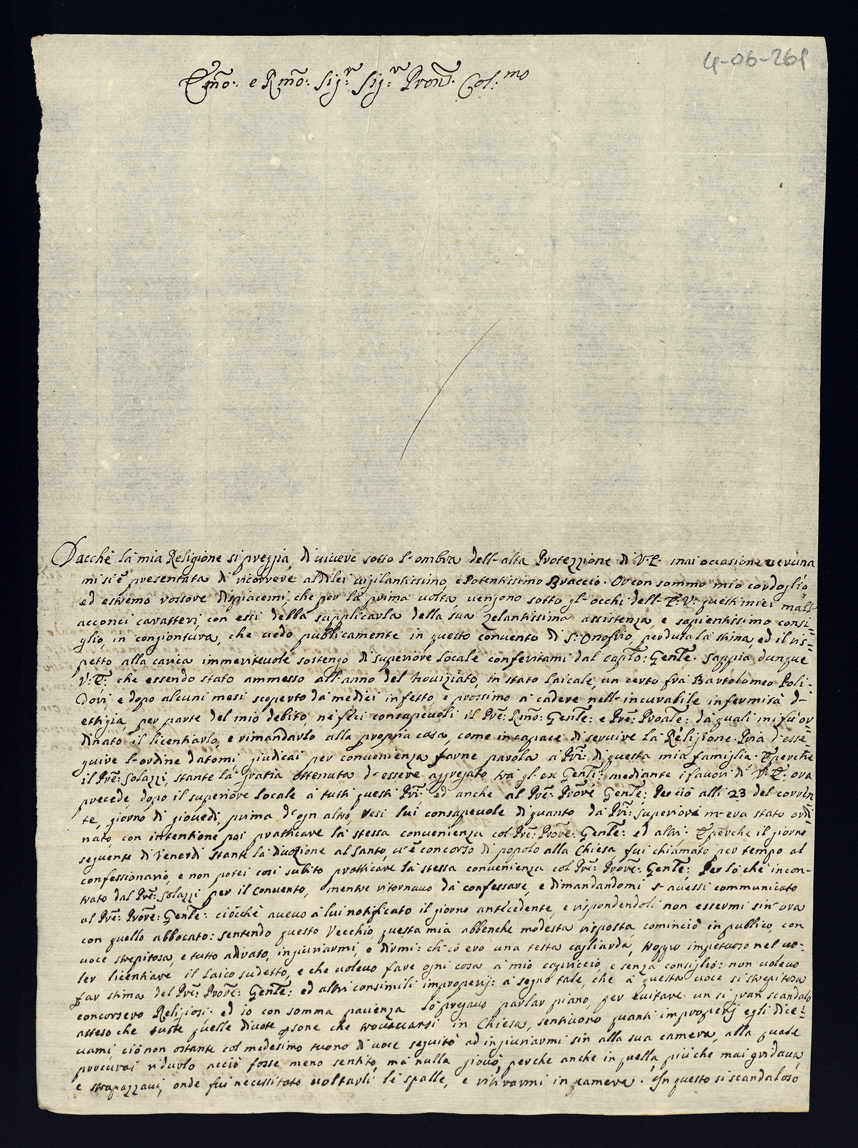 4-06-261
Em̃o: e Rm̃o: Sig.r Sig.r Pron̄: Col:mo
Dacche la mia Religione si preggia, di uiuere sotto l'ombra dell'alta Protezzione di V.E. mai occasione ueruna
mi si è presentata di ricorrere al di lei uigilantissimo, e Potentissimo Braccio. Or con sommo mio cordoglio,
ed estremo rossore dispiacemi, che per la prima uolta uengono sotto gl'occhi dell'E.V. questi miei mal=
acconci caratteri, con essi della supplicarla della sua zelantissima assistenza, e sapientissimo consi=
glio, in congiontura, che uedo publicamente in questo conuento di S: Onofrio perduta la stima, ed il ris=
petto alla carica immeriteuole sostengo di superiore locale conferitami dal capl̃o: Gen̄le. Sappia dunque
V.E. che essendo stato ammesso all'anno del Nouiziato in stato laicale, un certo fra Bartolomeo Poli=
dori, e dopo alcuni mesi scoperto da medici infetto e prossimo a cadere nell'incurabile infermità d=
ethizia, per parte del mio debito, ne feci consapeuoli il Pre: Rm̃o: Gen̄le: e Pre: Proale: da quali mi fù or
dinato il licentiarlo, e rimandarlo alla propria casa, come incapace di seruire la Religione. Pria d'esse
guire l'ordine datomi, giudicai per conuenienza farne parola a PP̄ri di questa mia famiglia. E perche
il Pre: Solazzi, stante la gratia ottenuta d'essere aggregato tra gl'ex Gen̄li: mediante i fauori di V.E. ora
precede dopo il superiore locale a tutti questi PP̄ri ed anche al Pre: Procre Gen̄le: Perciò alli 23 del corren
te, giorno di giouedi, prima d'ogn altro resi lui consapeuole di quanto da PP̄ri Superiore m'era stato ordi
nato con intentione poi pratticare la stessa conuenienza col Pre: Procre: Gen̄le: ed altri. E perche il giorno
seguente di Venerdi stante la diuozione al Santo, u'è concorso di popolo alla Chiesa fui chiamato per tempo al
confessionario, e non potei cosi subito pratticare la stessa conuenienza col Pre: Procre: Gen̄le: Per lo che incon=
trato dal Pre: Solazzi per il conuento, mentre ritornauo da confessare, e dimandandomi s'auessi communicato
al Pre: Procre: Gen̄le: ciòche aueuo à lui notificato il giorno antecedente, e rispondendoli non essermi sin'ora
con quello abboccato: sentendo questo Vecchio questa mia abbenche modesta risposta cominciò in publico, con
uoce strepitosa, e tutto adirato, ingiuriarmi, e dirmi: ch'io ero una testa gagliarda, troppo impetuoso nel uo=
ler licentiare il laico sudetto, e che uoleuo fare ogni cosa à mio capriccio, e senza consiglio: non uoleuo
far stima del Pre: Procre: Gen̄le: ed altri consimili improperij: à segno tale, che à questa uoce si strepitosa
concorsero Religiosi: ed io con somma pacienza lo pregauo parlar piano, per euitare un si gran scandalo
atteso che tutte quelle diuote persone che trouauansi in Chiesa, sentiuano quanti improperij egli dice=
uami ciò non ostante col medesimo tuono di uoce seguitò ad ingiuriarmi sin alla sua camera, alla quale
procurai ridurlo acciò fosse meno sentito, ma nulla giouò, perche anche in quella piu che mai gridaua,
e strapazzaui, onde fui necessitato uoltarli le spalle, e ritirarmi in camera. In questo si scandaloso